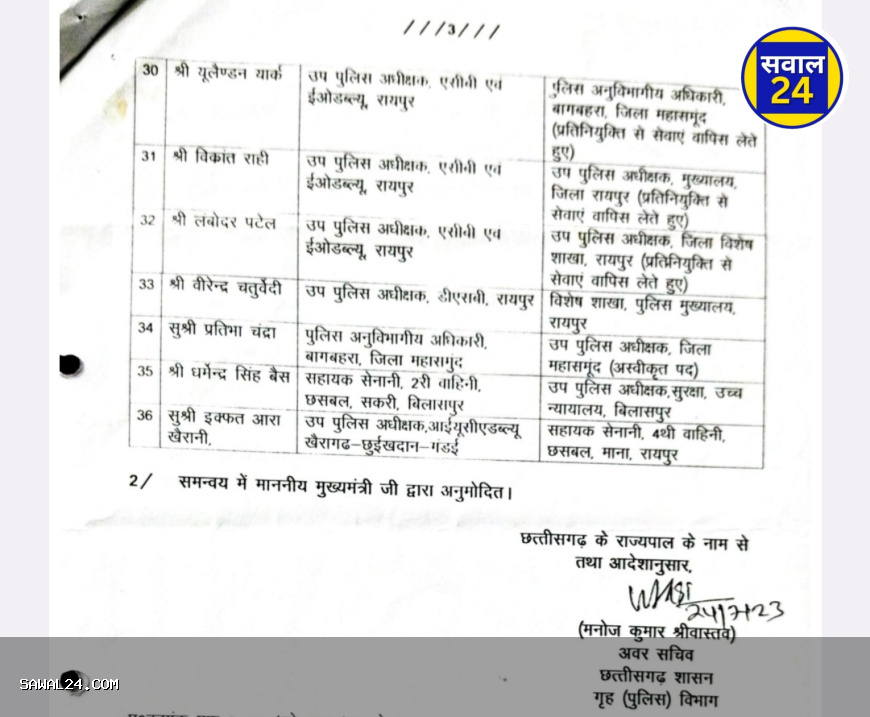 ///3///
सवाल
24
30 श्री यूलैण्डन यार्क उप पुलिस अधीक्षक, एसीबी एवं ईओडब्ल्यू, रायपुर पुलिस अनुविभागीय अधिकारी, बागबहरा, जिला महासमुंद (प्रतिनियुक्ति से सेवाएं वापिस लेते हुए)
31 श्री विकांत राही उप पुलिस अधीक्षक, एसीबी एवं ईओडब्ल्यू, रायपुर उप पुलिस अधीक्षक, मुख्यालय, जिला रायपुर (प्रतिनियुक्ति से सेवाएं वापिस लेते हुए)
32 श्री लंबोदर पटेल उप पुलिस अधीक्षक, एसीबी एवं ईओडब्ल्यू, रायपुर उप पुलिस अधीक्षक, जिला विशेष शाखा, रायपुर (प्रतिनियुक्ति से सेवाएं वापिस लेते हुए)
33 श्री वीरेन्द्र चतुर्वेदी उप पुलिस अधीक्षक, डीएसबी, रायपुर विशेष शाखा, पुलिस मुख्यालय, रायपुर
34 सुश्री प्रतिभा चंद्रा पुलिस अनुविभागीय अधिकारी, बागबहरा, जिला महासमुंद उप पुलिस अधीक्षक, जिला महासमूंद (अस्वीकृत पद)
35 श्री धर्मेन्द्र सिंह बैस सहायक सेनानी, 2री वाहिनी, छसबल, सकरी, बिलासपुर उप पुलिस अधीक्षक,सुरक्षा, उच्च न्यायालय, बिलासपुर
36 सुश्री इक्फत आरा खैरानी, उप पुलिस अधीक्षक,आईयूसीएडब्ल्यू खैरागढ–छुईखदान–गंडई सहायक सेनानी, 4थी वाहिनी, छसबल, माना, रायपुर
2/ समन्वय में माननीय मुख्यमंत्री जी द्वारा अनुमोदित।
छत्तीसगढ़ के राज्यपाल के नाम से
तथा आदेशानुसार,
24/7/23
(मनोज कुमार श्रीवास्तव)
अवर सचिव
छत्तीसगढ़ शासन
गृह (पुलिस) विभाग
SAWAL24.COM